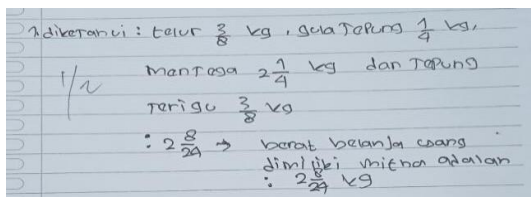 2 diketahui : telur 3/8 kg, gula Tepung 1/4 kg,
mantega 2 1/4 kg dan Tepung
Terigu 3/8 kg
: 2 8/24 → berat belanja
dimiliki mitha adalah
: 2 8/24 kg